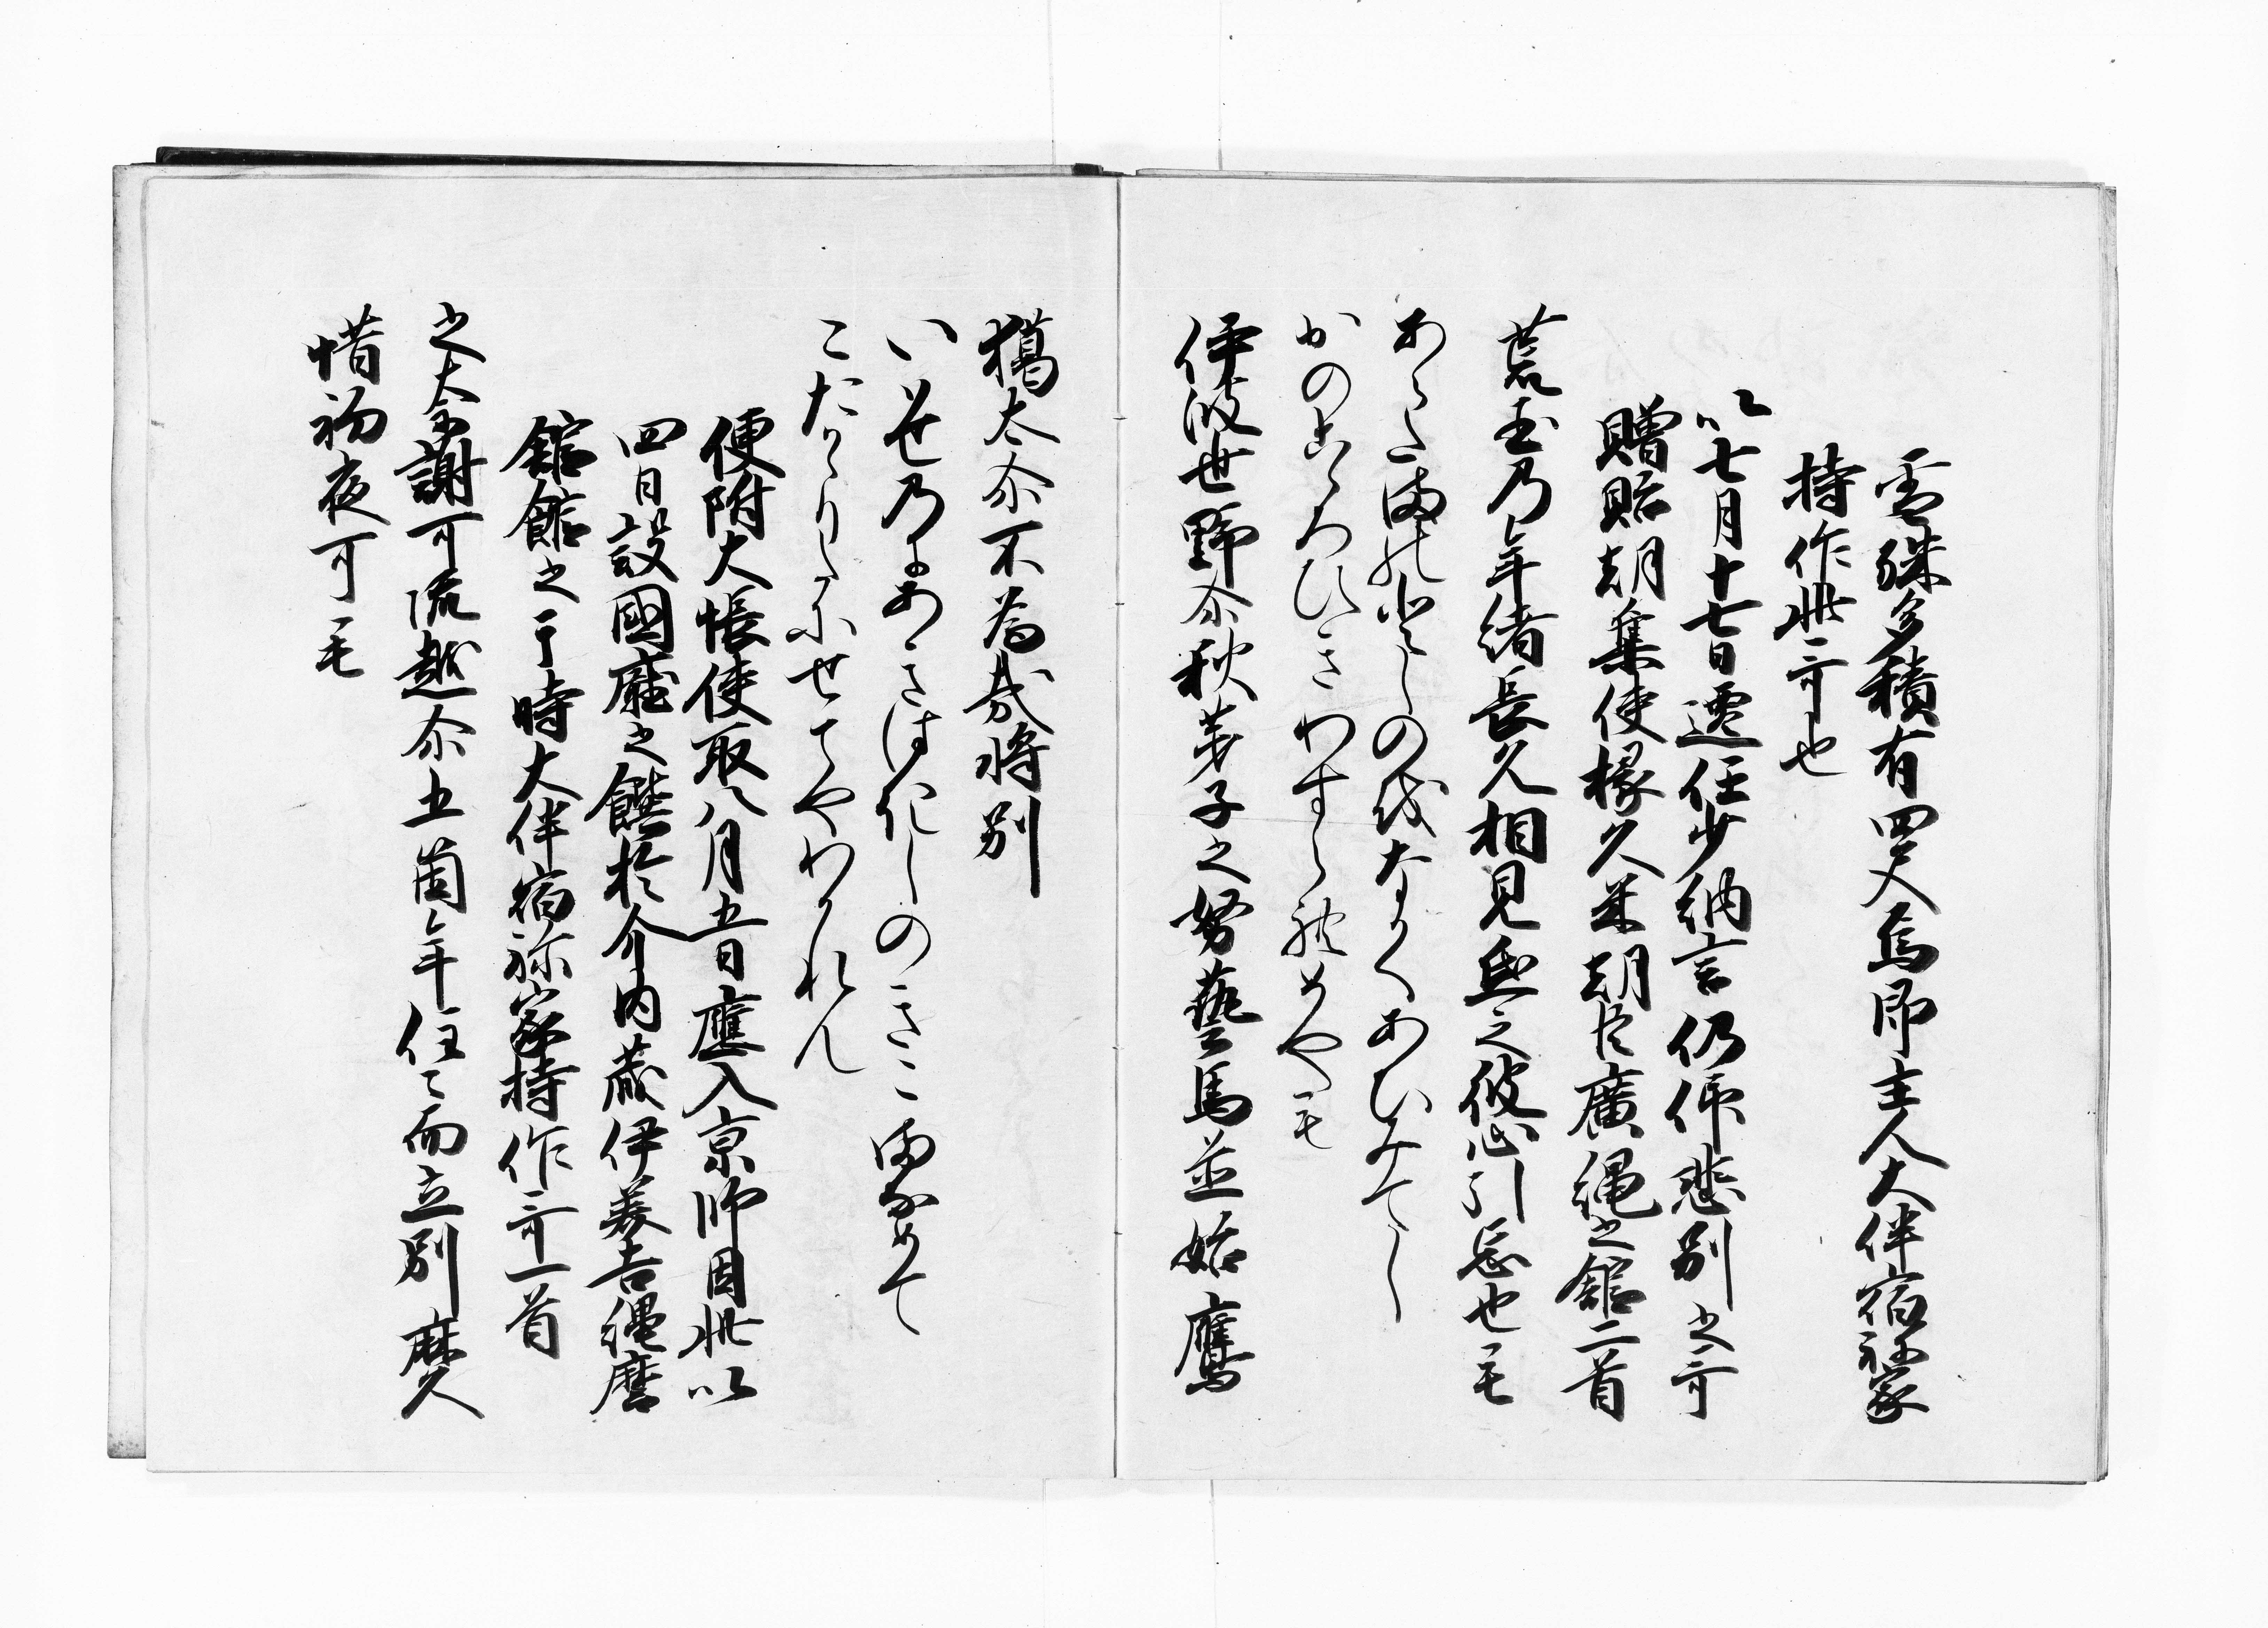 雪殊多積有四尺焉即主人大伴宿祢家
持作此哥也
以七月十七日遷任少納言仍作悲別之哥
贈貽朝集使掾久米朝臣廣縄之舘二首
荒玉乃年緒長久相見氐之彼心引忘也毛
あらたまのとしのをなかくあひみてし
かのこゝろひきわすられめやも
伊波世野尓秋芽子之努藝馬並始鷹
獦太尓不為哉将別
いはせのにあきはきしのきこまなめて
こたかゝりたにせてやわかれん
便附大帳使取八月五日應入京師因此以
四日設國廳之饌於介内蔵伊美吉縄麿
舘餞之于時大伴宿祢家持作哥一首
之太謝可流越尓五箇年住々而立別麻久
惜初夜可毛